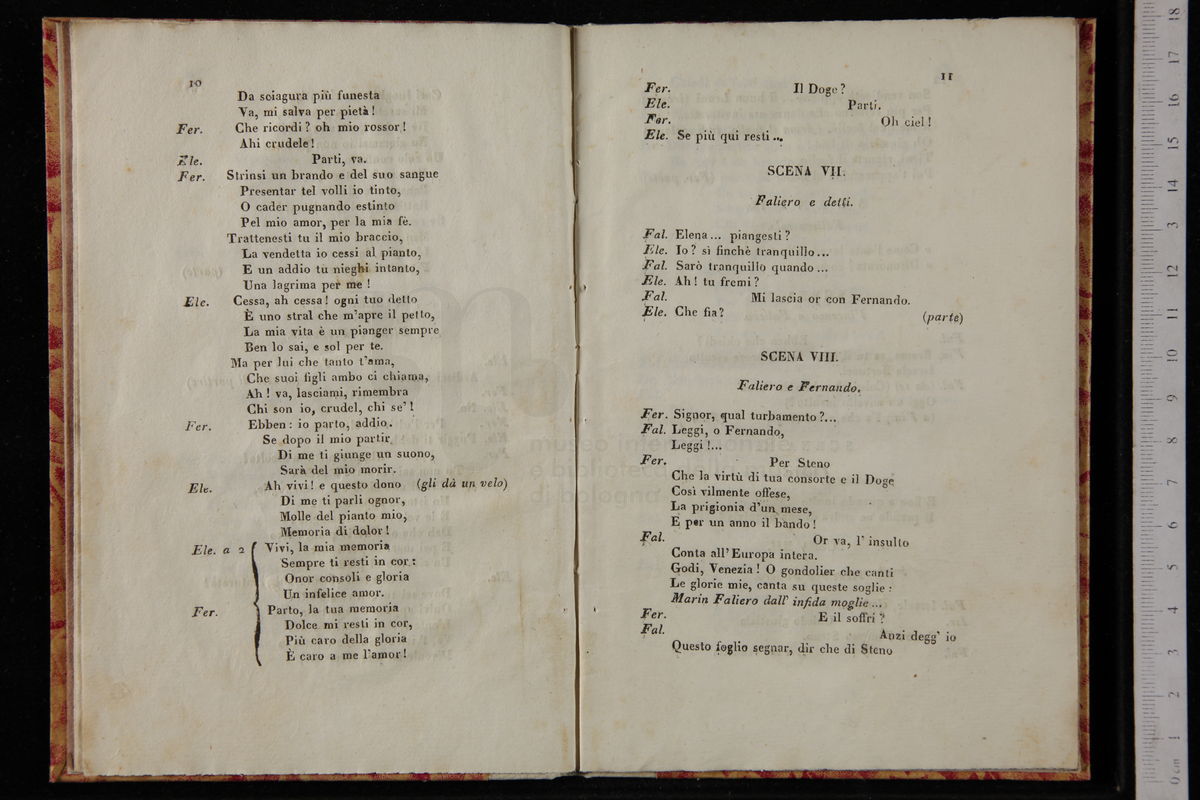 10
Da sciagura più funesta
Va, mi salva per pietà!
Fer. Che ricordi? oh mio rossor!
Ahi crudele!
Ele. Parti, va.
Fer. Strinsi un brando e del suo sangue
Presentar tel volli io tinto,
O cader pugnando estinto
Pel mio amor, per la mia fè.
Trattenesti tu il mio braccio,
La vendetta io cessi al pianto,
E un addio tu nieghi intanto,
Una lagrima per me!
Ele. Cessa, ah cessa! ogni tuo detto
È uno stral che m'apre il petto,
La mia vita è un pianger sempre
Ben lo sai, e sol per te.
Ma per lui che tanto t'ama,
Che suoi figli ambo ci chiama,
Ah! va, lasciami, rimembra
Chi son io, crudel, chi se'!
Fer. Ebben: io parto, addio.
Se dopo il mio partir
Di me ti giunge un suono,
Sarà del mio morir.
Ele. Ah vivi! e questo dono (gli dà un velo)
Di me ti parli ognor,
Molle del pianto mio,
Memoria di dolor!
Ele. a 2 Vivi, la mia memoria
Sempre ti resti in cor:
Onor consoli e gloria
Un infelice amor.
Fer. Parto, la tua memoria
Dolce mi resti in cor,
Più caro della gloria
È caro a me l'amor!
11
Fer. Il Doge?
Ele. Parti.
Fer. Oh ciel!
Ele. Se più qui resti...
SCENA VII.
Faliero e detti.
Fal. Elena... piangesti?
Ele. Io? sì finchè tranquillo...
Fal. Sarò tranquillo quando...
Ele. Ah! tu fremi?
Fal. Mi lascia or con Fernando.
Ele. Che fia? (parte)
SCENA VIII.
Faliero e Fernando.
Fer. Signor, qual turbamento?...
Fal. Leggi, o Fernando,
Leggi!...
Fer. Per Steno
Che la virtù di tua consorte e il Doge
Così vilmente offese,
La prigionia d'un mese,
E per un anno il bando!
Fal. Or va, l'insulto
Conta all'Europa intera.
Godi, Venezia! O gondolier che canti
Le glorie mie, canta su queste soglie:
Marin Faliero dall' infida moglie...
Fer. E il soffri?
Fal. Anzi degg' io
Questo foglio segnar, dir che di Steno